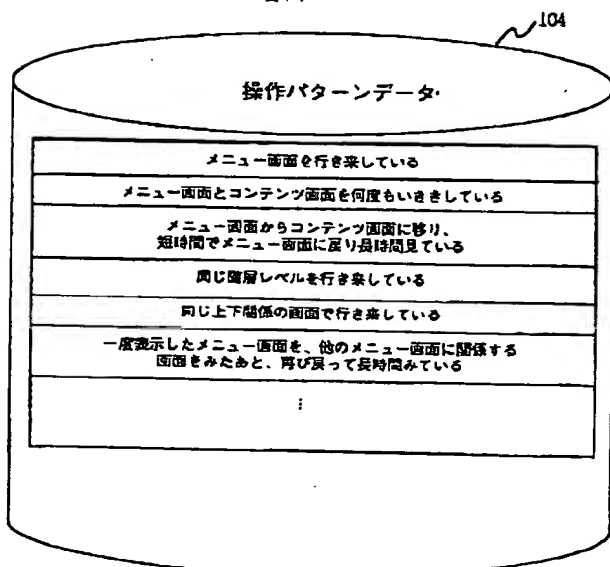 104
操作パターンデータ
メニュー画面を行き来している
メニュー画面とコンテンツ画面を何度もいききしている
メニュー画面からコンテンツ画面に移り、
短時間でメニュー画面に戻り長時間見ている
同じ階層レベルを行き来している
同じ上下関係の画面で行き来している
一度表示したメニュー画面を、他のメニュー画面に関係する
画面をみたあと、再び戻って長時間みている
⋮